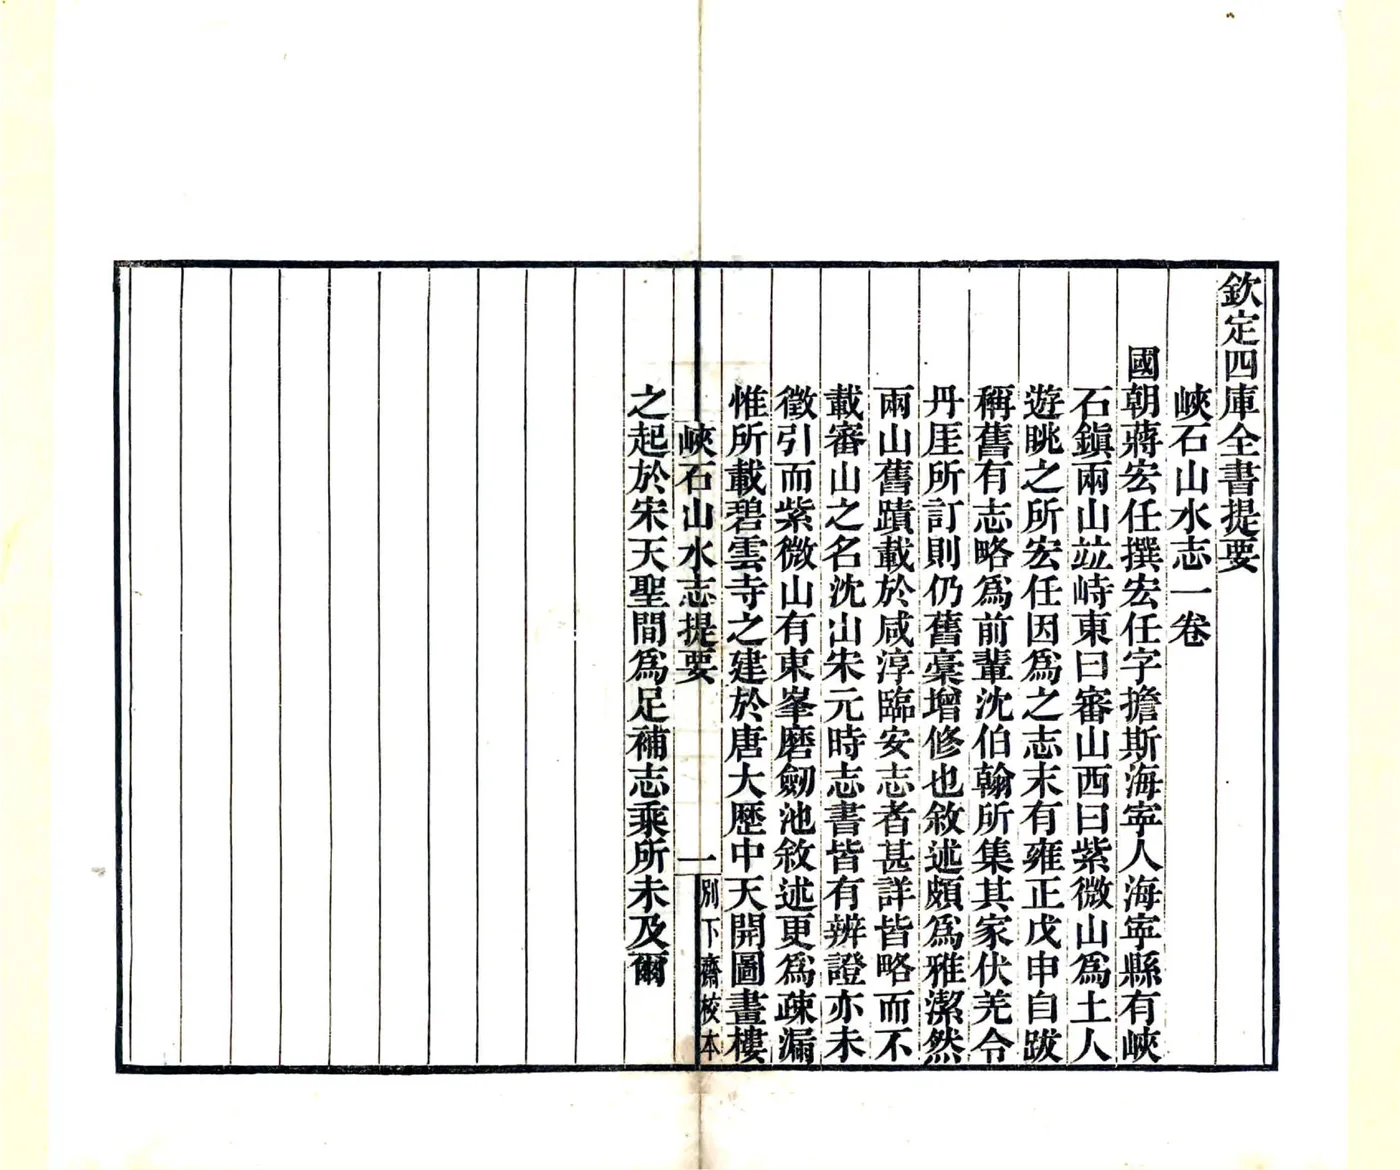 欽定四庫全書提要
峽石山水志一卷
國朝蔣宏任撰宏任字擔斯海寧人海寧縣有峽
石鎮兩山竝峙東曰審山西曰紫微山爲土人
遊眺之所宏任因爲之志末有雍正戊申自跋
稱舊有志略爲前輩沈伯翰所集其家伏羌令
丹厓所訂則仍舊稾增修也敘述頗爲雅潔然
兩山舊蹟載於咸淳臨安志者甚詳皆略而不
載審山之名沈山宋元時志書皆有辨證亦未
徵引而紫微山有東峯磨劒池敘述更爲疎漏
惟所載碧雲寺之建於唐大歷中天開圖畫樓
峽石山水志提要
一
別下齋校本
之起於宋天聖間爲足補志乘所未及爾